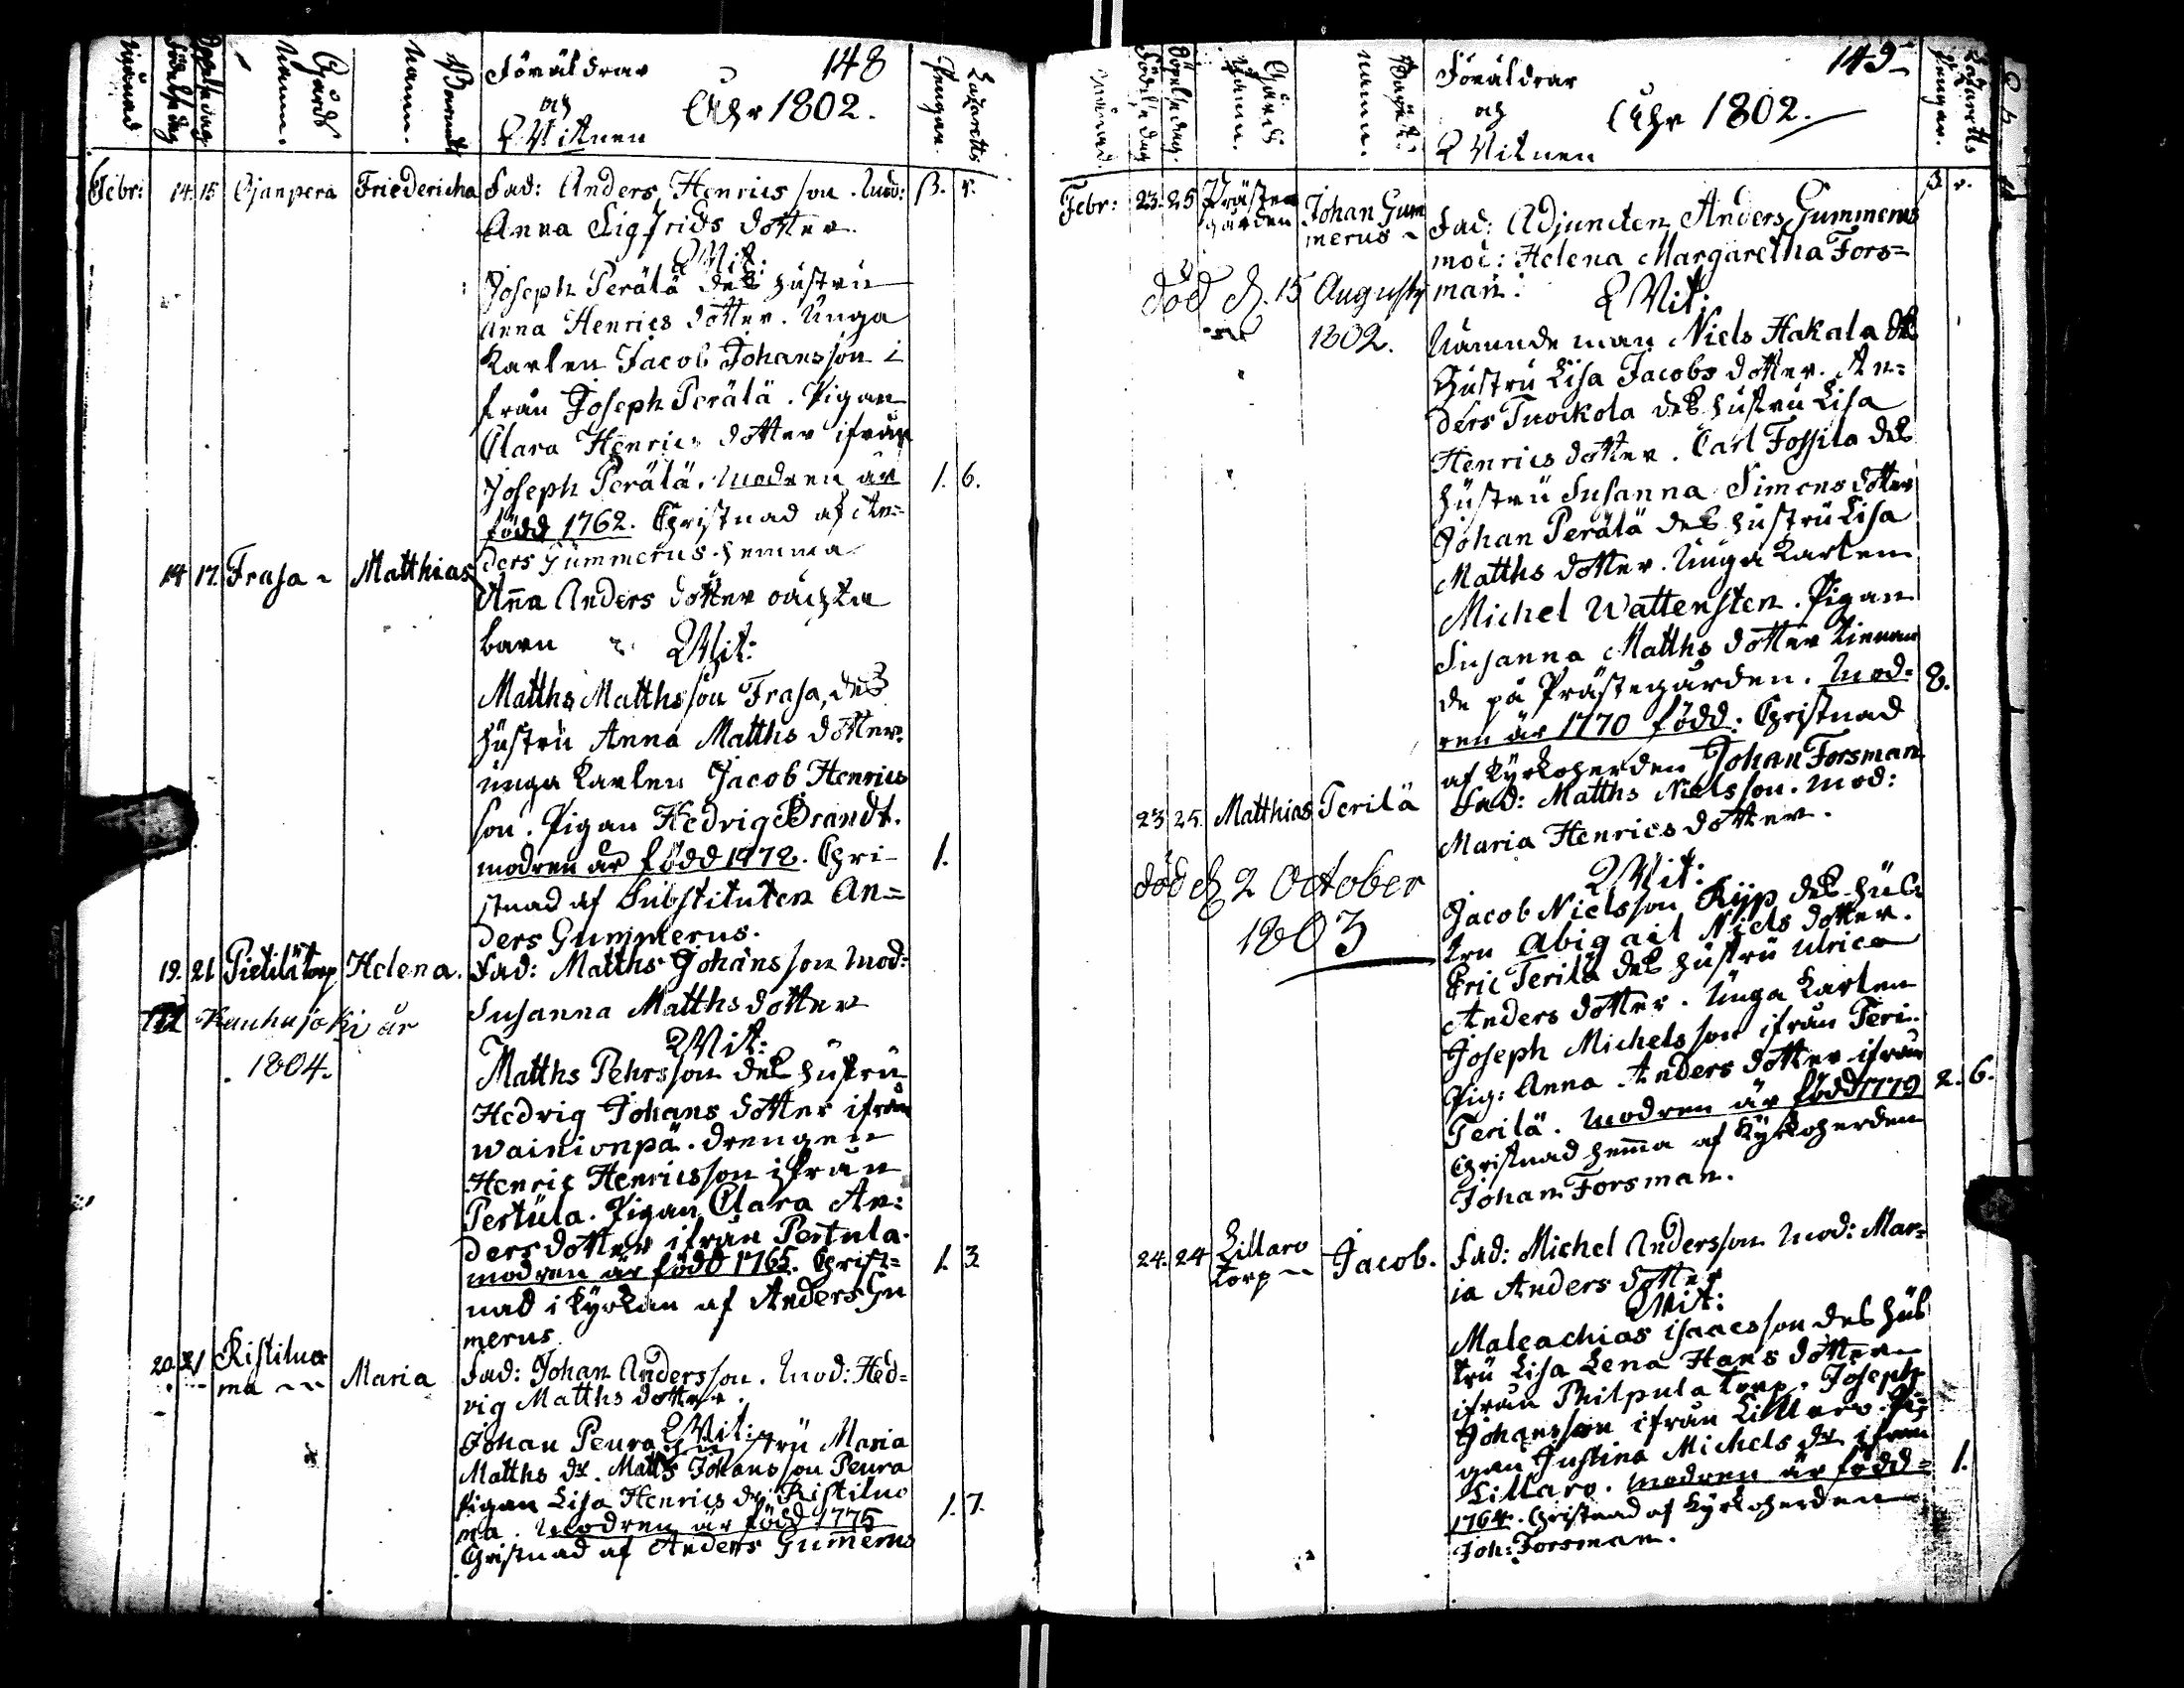 148
Månad
Födelse dag
Döpelse dag
Gårds
Namn.
Barnets
Namn.
Föräldrar
och
Witnen
Åhr 1802.
Lazaretts
Pengar.
Febr: 14. 15 Ojanpera Friedericha Fad: Anders Henrics son. Mod: β. r.
Anna Sigfrids dotter
Wit:
Joseph Perälä des hustru
Anna Henrics dotter. Unga
Karlen Jacob Johansson i
från Joseph Perälä. Pigan
Clara Henrics dotter ifrån
Joseph Perälä. Modren är 1. 6.
född 1762. Christnad af An=
ders Gummerus hemma
14 17. Frasa Matthias
Anna Anders dotter oächta
barn Wit:
Matths Matthsson Frasa, des
hustru Anna Matths dotter.
unga Karlen Jacob Henrics
son. Pigan Hedvig Brandt.
modren är född 1772. Chri- 1.
stnad af Substituten An=
ders Gummerus.
19. 21 Pietilä torp Helena. Fad: Matths Johansson Mod:
Till Kauhajoki år
1804.
Susanna Matthsdotter
Wit:
Matths Pehrsson des hustru
Hedvig Johans dotter ifrån
Wainionpä. drengen
Henric Henricsson ifrån
Pertula. Pigan Clara An=
ders dotter ifrån Pertula.
modren är född 1765. Christ= 1. 3.
nad i kyrkan af Anders Gu
merus
20. 21 Ristiluo
ma Maria Fad: Johan Andersson. Mod: Hed=
vig Matths dotter.
Wit:
Johan Peura hustru Maria
Matths dr. Matts Johansson Peura
Pigan Lisa Henrics dr Ristiluo
ma. Modren är född 1775 1. 7.
Christnad af Anders Gumerus
149
Månad.
Födelse dag
Döpelse dag.
Gårds
Namn.
Barnets
namn.
Föräldrar
och
Witnen
Åhr 1802.
Lazaretts
Pengar.
Febr: 23. 25 Präste
gården Johan Gum
merus β. r.
Fad: Adjuncten Anders Gummerus
mod: Helena Margaretha Fors=
man. Wit:
död d. 15 Augusti
1802.
Nämndeman Niels Hakala des
Hustru Lisa Jacobs dotter. An=
ders Tuockola des hustru Lisa
Henrics dotter. Carl Fossila des
hustru Susanna Simons dotter
Johan Perälä des hustru Lisa
Matths dotter. Unga Karlen
Michel Wattensten. Pigan
Susanna Matths dotter tienan
de på Prästegården. Mod= 8.
ren är 1770 född. Christnad
af Kyrkoherden Johan Forsman
23 25. Matthias Terilä Fad: Matths Nielsson. Mod:
Maria Henrics dotter.
Wit:
död d 2 October
1803
Jacob Nielsson Ryp des hus
tru Abigail Niels dotter.
Eric Terilä des hustru Ulrica
Anders dotter. Unga Karlen
Joseph Michelsson ifrån Teri.
Pig: Anna Anders dotter ifrån
Terilä. Modren är född 1779 2. 6.
Christnad hemma af Kyrkoherden
Johan Forsman.
24. 24 Lillaro
torp Jacob. Fad: Michel Andersson Mod: Mar=
ia Anders dotter
Wit:
Maleachias isaacsson des hus
tru Lisa Lena Hans dotter
ifrån Philpula Torp. Joseph
Johansson ifrån Lillaro. Pi=
gan Justina Michels dr ifrån
Lillaro. modren är född= 1.
1764. Christnad af Kyrkoherden
Joh: Forsman.